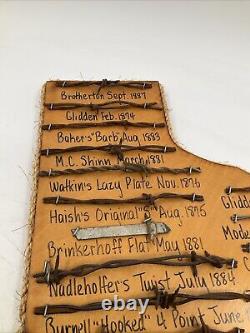 Brotherton Sept. 1887
Glidden Feb. 1874
Baker's "Barb" Aug. 1883
M.C. Shinn March, 1881
Watkin's Lazy Plate Nov. 1876
Haish's Original "S" Aug. 1875
Brinkerhoff Flat May 1881
Nadleholfer's Twist July 1884
Burnell "Hooked" 4 Point June
Glidd
Mode
Jun